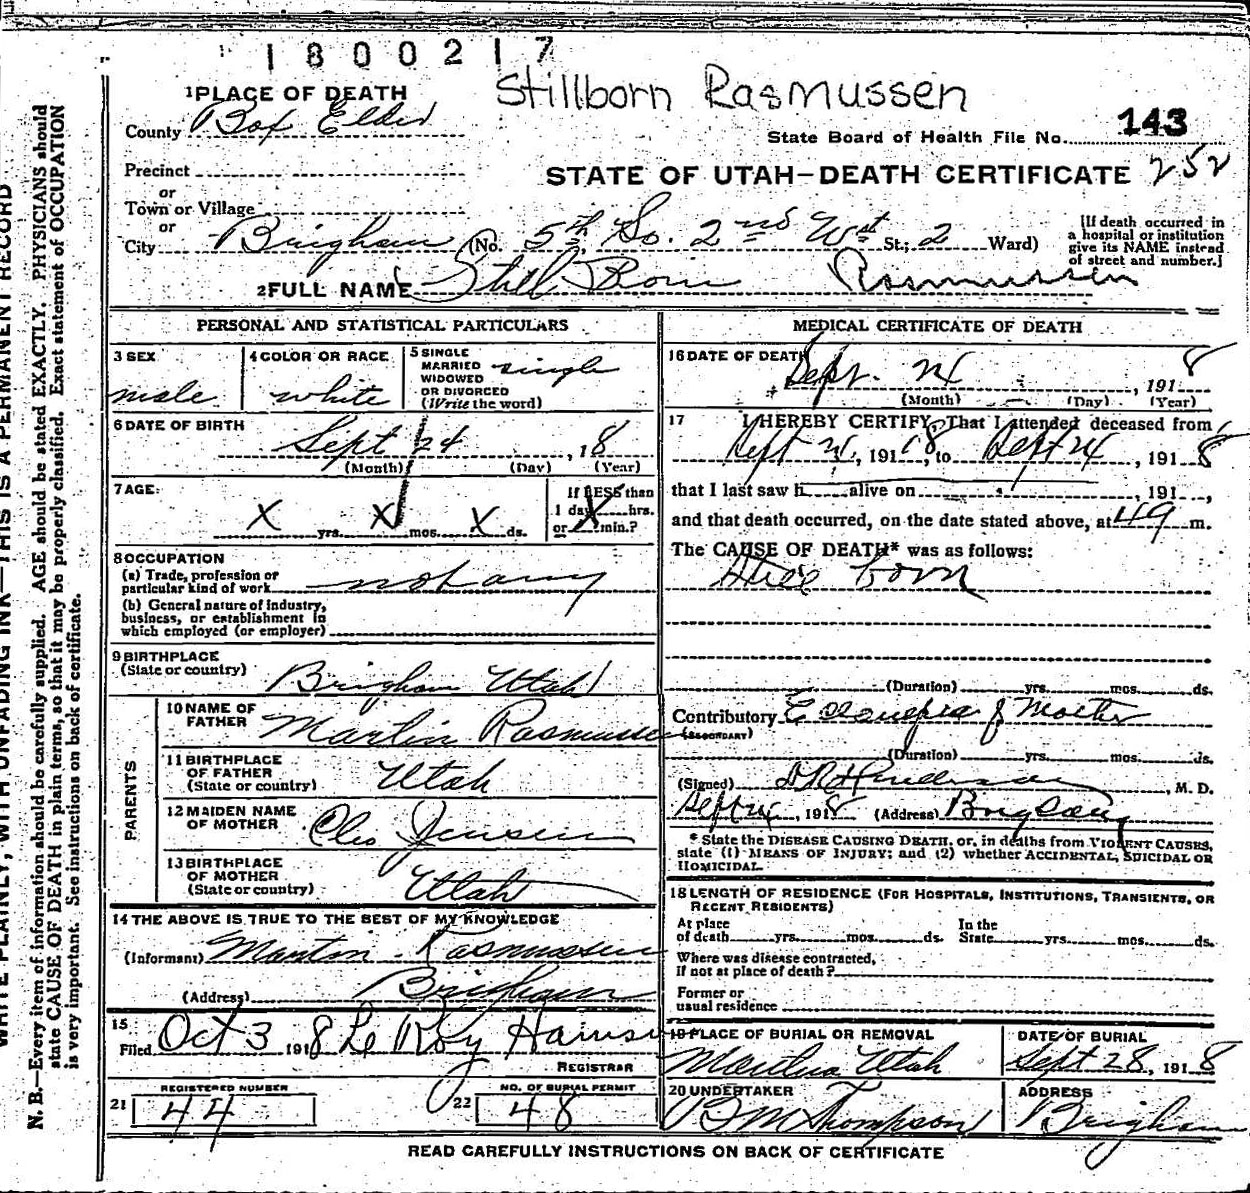 1800217
Stillborn Rasmussen
1 PLACE OF DEATH
County Box Elder
State Board of Health File No. 143
Precinct
or
Town or Village
or
STATE OF UTAH—DEATH CERTIFICATE 252
City Brigham (No. 5th So. 2nd Wst St.; 2 Ward)
[If death occurred in
a hospital or institution
give its NAME instead
of street and number.]
2 FULL NAME Still Born Rasmussen
PERSONAL AND STATISTICAL PARTICULARS
3 SEX
male
4 COLOR OR RACE
white
5 SINGLE
MARRIED
WIDOWED
OR DIVORCED
(Write the word)
single
6 DATE OF BIRTH
Sept 24, 18
(Month) (Day) (Year)
7 AGE
X yrs. X mos. X ds.
If LESS than
1 day hrs.
or min.?
X
8 OCCUPATION
(a) Trade, profession or
particular kind of work not any
(b) General nature of industry,
business, or establishment in
which employed (or employer)
9 BIRTHPLACE
(State or country) Brigham Utah
PARENTS
10 NAME OF
FATHER Martin Rasmussen
11 BIRTHPLACE
OF FATHER
(State or country) Utah
12 MAIDEN NAME
OF MOTHER Cleo Jensen
13 BIRTHPLACE
OF MOTHER
(State or country) Utah
14 THE ABOVE IS TRUE TO THE BEST OF MY KNOWLEDGE
(Informant) Martin Rasmussen
(Address) Brigham
15
Filed Oct 3 1918 Le Roy
REGISTRAR
REGISTERED NUMBER
21 44
NO. OF BURIAL PERMIT
22 48
MEDICAL CERTIFICATE OF DEATH
16 DATE OF DEATH
Sept. 24, 1918
(Month) (Day) (Year)
17 I HEREBY CERTIFY, That I attended deceased from
Sept 24, 1918, to Sept 24, 1918
that I last saw h alive on , 191 ,
and that death occurred, on the date stated above, at m.
The CAUSE OF DEATH* was as follows:
Still born
(Duration) yrs. mos. ds.
Contributory Eclampsia of Mother
(SECONDARY)
(Duration) yrs. mos. ds.
(Signed) , M. D.
Sept 24, 1918 (Address) Brigham
* State the DISEASE CAUSING DEATH, or, in deaths from VIOLENT CAUSES,
state (1) MEANS OF INJURY; and (2) whether ACCIDENTAL, SUICIDAL OR
HOMICIDAL.
18 LENGTH OF RESIDENCE (FOR HOSPITALS, INSTITUTIONS, TRANSIENTS, OR
RECENT RESIDENTS)
At place
of death yrs. mos. ds.
In the
State yrs. mos. ds.
Where was disease contracted,
if not at place of death?
Former or
usual residence
19 PLACE OF BURIAL OR REMOVAL
Utah
DATE OF BURIAL
Sept 28, 1918
20 UNDERTAKER
Thompson
ADDRESS
Brigham
READ CAREFULLY INSTRUCTIONS ON BACK OF CERTIFICATE
WRITE PLAINLY, WITH UNFADING INK—THIS IS A PERMANENT RECORD
N. B.—Every item of information should be carefully supplied. AGE should be stated EXACTLY. PHYSICIANS should
state CAUSE OF DEATH in plain terms, so that it may be properly classified. Exact statement of OCCUPATION
is very important. See instructions on back of certificate.